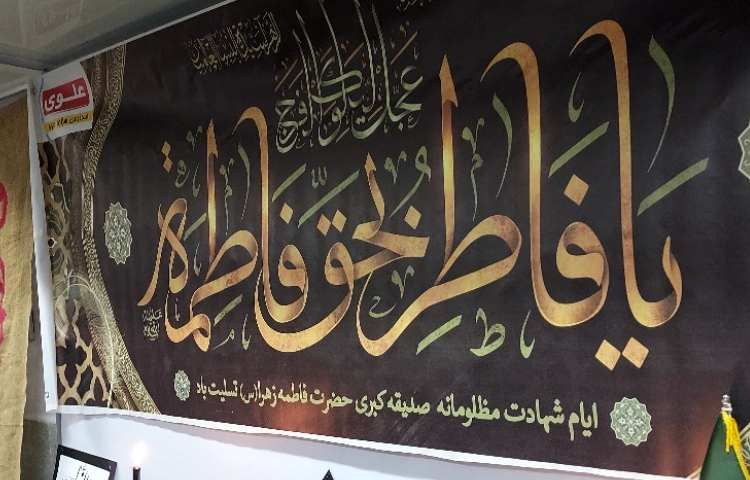 علوی
عجل لولیک الفرج
یا فاطر بحق فاطمة
ایام شهادت مظلومانه صدیقه کبری حضرت فاطمه زهرا(س) تسلیت باد